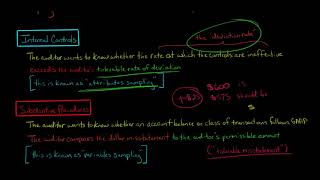 the "deviation rate"
Internal Controls
The auditor wants to know whether the rate at which the controls are ineffective
exceeds the auditor's tolerable rate of deviation
[this is known as "attributes sampling"]
$600 is
$575 should be
$
Substantive Procedures
The auditor wants to know whether an account balance or class of transactions follows GAAP
The auditor compares the dollar misstatement to the auditor's permissible amount
[this is known as variables sampling]
("tolerable misstatement")